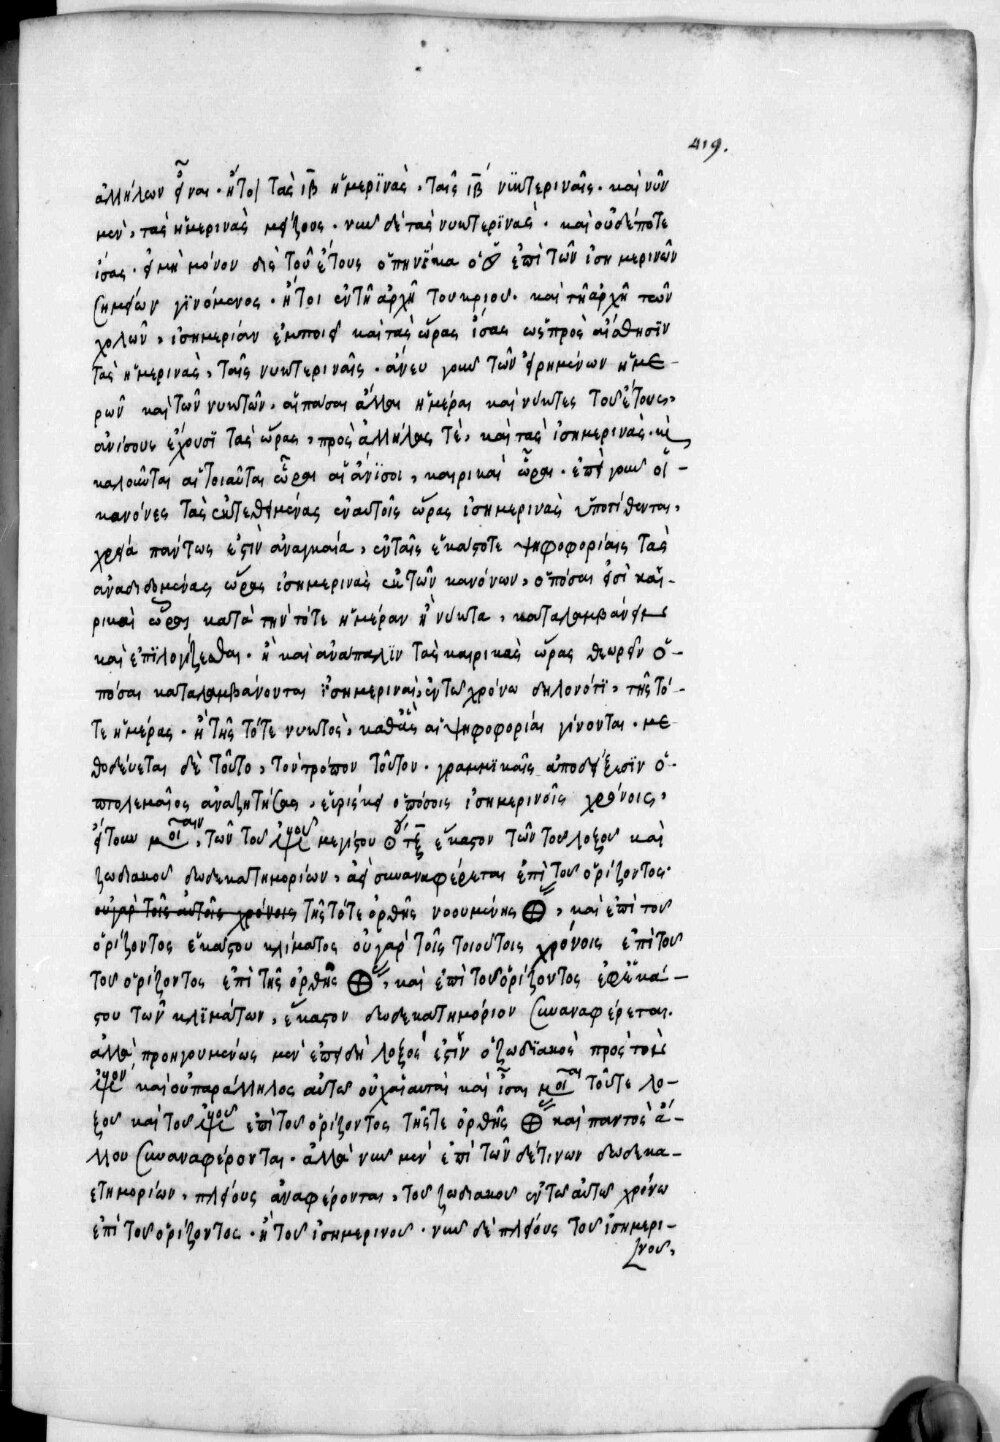 419.
ἀλλήλων εἶναι· ἤτοι τὰς ιβ ἡμερϊνὰς, ταῖς ιβ νϋκτεριναῖς· καὶ νῦν
μὲν, τὰς ἡμερινὰς μείζους· νῦν δὲ τὰς νυκτερϊνάς· καὶ οὐδέποτε
ἴσας· εἰ μὴ μόνον δὶς τοῦ ἔτους ὁπηνίκα ὁ ἐπὶ τῶν ἰσημερινῶν
σημείων γϊνόμενος· ἤτοι ἐν τῆ ἀρχῆ τοῦ κριοῦ· καὶ τῆ ἀρχῆ τῶν
χηλῶν, ἰσημερίαν ἐμποιεῖ καὶ τὰς ὥρας ἴσας ὡς πρὸς αἴσθησϊν
τὰς ἡμερινὰς, ταῖς νυκτεριναῖς· ἄνευ γοῦν τῶν εἰρημένων ἡμε-
ρῶν καὶ τῶν νυκτῶν, αἱ πᾶσαι ἄλλαι ἡμέραι καὶ νύκτες τοῦ ἔτους,
ἀνίσους ἔχουσϊ τὰς ὥρας, πρὸς ἀλλήλας τὲ, καὶ τὰς ἰσημερινάς· κὶ
καλοῦνται αἱ τοιαῦται ὧραι αἱ ἄνϊσοι, καιρικαὶ ὧραι· ἐπεὶ γοῦν οἱ-
κανόνες τὰς ἐκτεθειμένας ἐν αὐτοῖς ὥρας ἰσημερινὰς ὑποτίθενται,
χρεία πάντως ἐστὶν ἀναγκαία, ἐν ταῖς ἑκάστοτε ψηφοφορίαις τὰς
ἀναδιδομένας ὥρας ἰσημερινὰς ἐκ τῶν κανόνων, ὁπόσαι εἰσὶ και-
ρικαὶ ὧραι κατὰ τὴν τότε ἡμέραν ἢ νύκτα, καταλαμβάνειν
καὶ ἐπϊλογίζεσθαι· ἢ καὶ ἀνάπαλϊν τὰς καιρικὰς ὥρας θεωρεῖν ὁ-
πόσαι καταλαμβάνονται ἰσημεριναὶ, ἐν τῶ χρόνω δηλονότϊ, τῆς τό-
τε ἡμέρας· ἢ τῆς τότε νυκτὸς, καθ' ἃς αἱ ψηφοφορίαι γίνονται· με
θοδεύεται δὲ τοῦτο, τὸν τρόπον τοῦτον· γραμμϊκαῖς ἀποδείξεσϊν ὁ-
πτολεμαῖος ἀναζητήσας, εὑρίσκει ὁπόσοις ἰσημερινοῖς χρόνοις,
ἤτοι τῶν τοῦ μεγίστου τξ ἕκαστον τῶν τοῦ λοξοῦ καὶ
ζωδιακοῦ δωδεκατημορίων, ἀεὶ συναναφέρεται ἐπὶ τοῦ ὁρίζοντος·
οὐ γὰρ τοῖς αὐτοῖς χρόνοις τῆς τότε ὀρθῆς νοουμένης ⊕, καὶ ἐπὶ τοῦ
ὁρίζοντος ἑκάστου κλίματος οὐ γὰρ τοῖς τοιούτοις χρόνοις ἐπὶ τοῦ
τοῦ ὁρίζοντος ἐπὶ τῆς ὀρθῆς ⊕, καὶ ἐπὶ τοῦ ὁρίζοντος ἐφ' ἑκά-
στου τῶν κλϊμάτων, ἕκαστον δωδεκατημόριον συναναφέρεται.
ἀλλὰ προηγουμένως μὲν ἐπειδὴ λοξὸς ἐστὶν ὁ ζωδϊακὸς πρὸς τὸν
καὶ οὐ παράλληλος αὐτῶ οὐχ αἱ αὐταὶ καὶ ἴσαι τοῦ τε λο-
ξοῦ καὶ τοῦ ἐπὶ τοῦ ὁρίζοντος τῆς τε ὀρθῆς ⊕ καὶ παντὸς ἄ-
λλου συναναφέρονται· ἀλλὰ νῦν μὲν ἐπὶ τῶν δέ τινων δωδεκα-
τημορίων, πλείους ἀναφέρονται, τοῦ ζωδιακοῦ ἐν τῶ αὐτῶ χρόνω
ἐπὶ τοῦ ὁρίζοντος· ἢ τοῦ ἰσημερινοῦ· νῦν δὲ πλείους τοῦ ἰσημερι-
νοῦ,